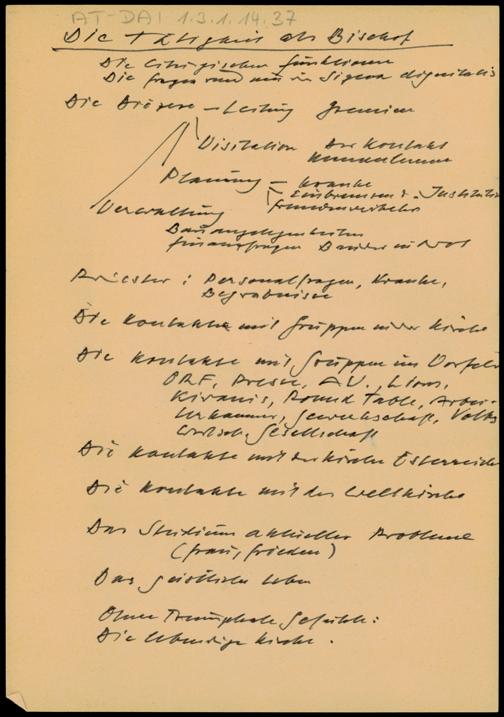 AT-DAI 1.3.1.14.37
Die Tätigkeit als Bischof
Die liturgischen Funktionen
Die Fragen rund um die Signa dignitatis
Die Diözese – Leitung Gremien
Visitation Der Kontakt
Planung – Kranke
Verwaltung Fremdenverkehr
Bauangelegenheiten
Finanzfragen
Priester: Personalfragen, Kranke,
Begräbnisse
Die Kontakte mit Gruppen in der Kirche
Die Kontakte mit Gruppen im Vorfeld
ORF, Presse, A.V., Lions,
Kiwanis, Round Table, Arbei-
terkammer, Gewerkschaft, Volks
Gesellschaft
Die Kontakte mit der Kirche Österreichs
Die Kontakte mit der Weltkirche
Das Studium aktueller Probleme
(Frau, Frieden)
Das geistliche Leben
Ohne Triumphale Gefühle:
Die lebendige Kirche.